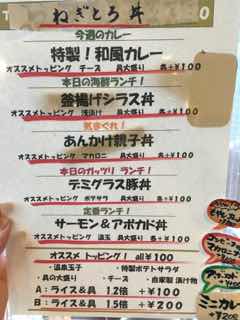 ねぎとろ丼
今週のカレー
特製！和風カレー
オススメトッピング チーズ 具大盛り 各＋¥100
本日の海鮮ランチ！
釜揚げシラス丼
オススメトッピング 浅漬け 具大盛り 各＋¥100
気まぐれ！
あんかけ親子丼
オススメトッピング マカロニ 具大盛り 各＋¥100
本日のガッツリ ランチ！
デミグラス豚丼
オススメトッピング ポテサラ 具大盛り 各＋¥100
定番ランチ！
サーモン＆アボカド丼
オススメトッピング 温玉 具大盛り 各＋¥100
オススメ トッピング！ all¥100
・温泉玉子 ・特製ポテトサラダ
・具の大盛り ・チーズ ・自家製 漬け物
A：ライス＆具 1.2倍 ＋¥100
B：ライス＆具 1.5倍 ＋¥200
ミニカレー
¥200